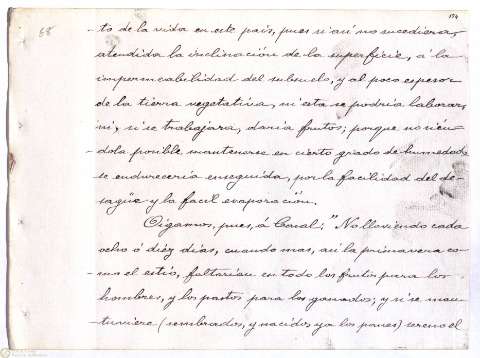 154
68
-to de la vida en este pais, pues si asi no sucediera,
atendida la inclinación de la superficie, á la
impermeabilidad del subsuelo, y al poco espesor
de la tierra vegetativa, ni esta se podria laborar,
ni, si se trabajara, daria frutos; porque no sién-
dola posible mantenerse en cierto grado de humedad
se endureceria enseguida, por la facilidad del de-
sagüe y la facil evaporación.
Oigamos, pues, á Canal; "No lloviendo cada
ocho ó diéz dias, cuando mas, asi la primavera co-
mo el estio, faltarian en todo los frutos para los
hombres, y los pastos para los ganados; y si se man-
tuviere (sembrados, y nacidos ya los panes) sereno el